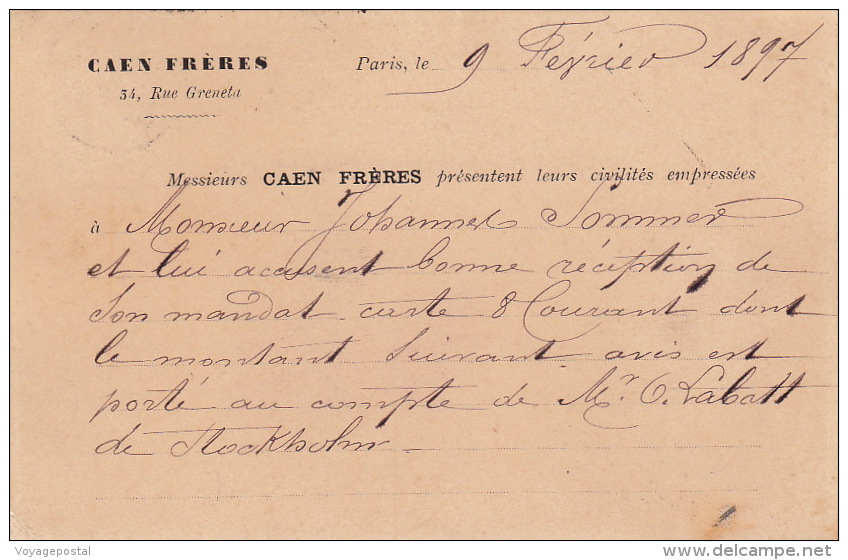 CAEN FRÈRES
34, Rue Greneta
Paris, le 9 Février 1897
Messieurs CAEN FRÈRES présentent leurs civilités empressées
à Monsieur Johannes Sommer
et lui accusent bonne réception de
son mandat carte 8 Courant dont
le montant suivant avis est
porté au compte de Mr O. Labatt
de Stockholm
Voyagepostal
delcampe.net